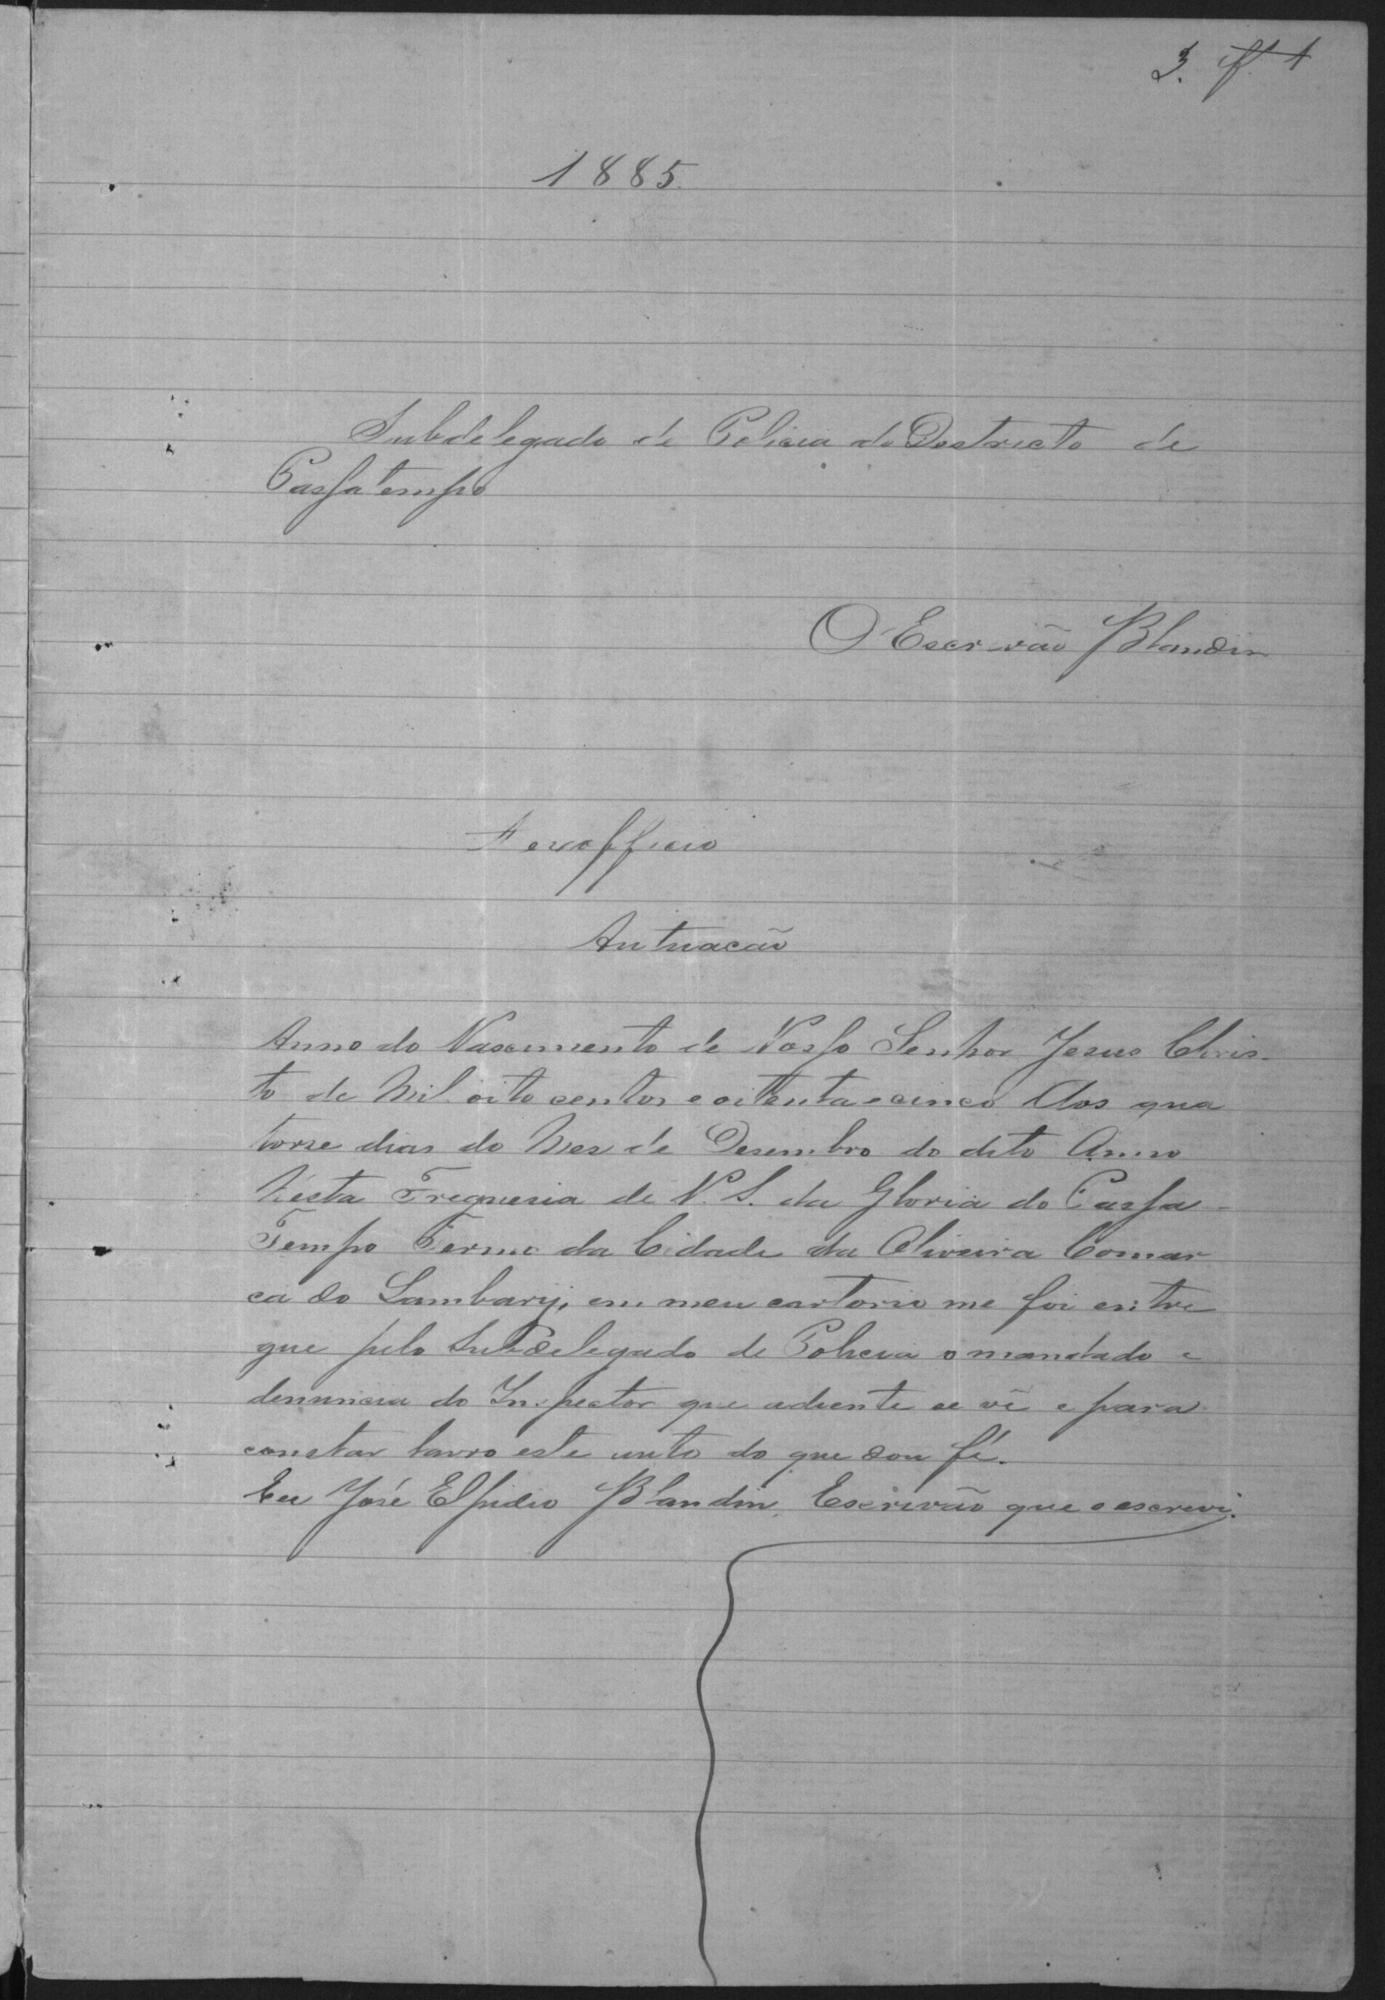 3. f. 1
1885
Subdelegado de Policia do Destricto de
Passatempo
O Escrivão Blandin
A exofficio
Autuacão
Anno do Nascimento de Nosso Senhor Jesus Chris-
to de Mil oito centos e oitenta e cinco Aos qua
torse dias do Mes de Desembro do dito Anno
N'esta Freguesia de N. S. da Gloria do Passa-
Tempo Termo da Cidade da Oliveira Comar
ca do Lambary, em meu cartorio me foi entre
gue pelo Subdelegado de Policia o mandado e
denuncia do Inspector que adiente se vê e para
constar lavro este auto do que dou fé.
Eu José Elpidio Blandin, Escrivão que o escrevi.